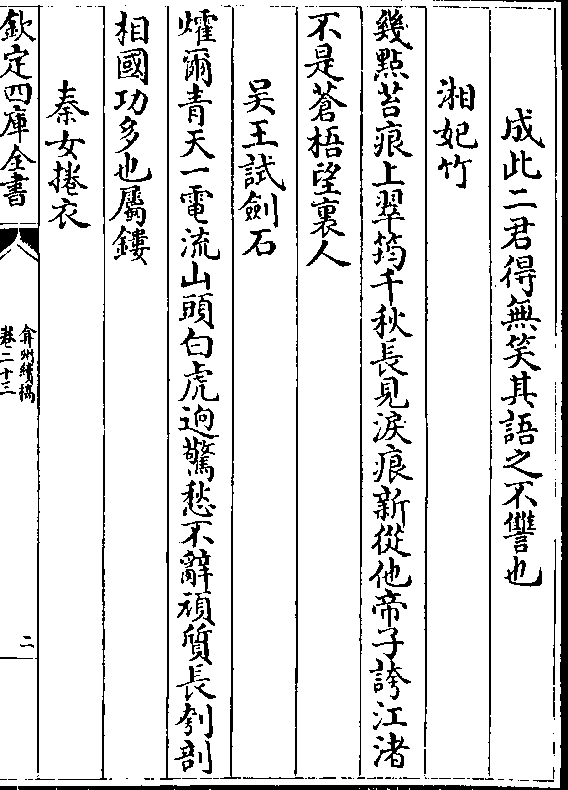 成此二君得無笑其語之不讐也
湘妃竹
幾點苔痕上翠筠千秋長見淚痕新從他帝子誇江渚
不是蒼梧望裏人
吴王試劍石
爟爾青天一電流山頭白虎逈驚愁不辭頑質長刳剖
相國功多也屬鏤
秦女捲衣
欽定四庫全書
弇州續稿
卷二十三
二